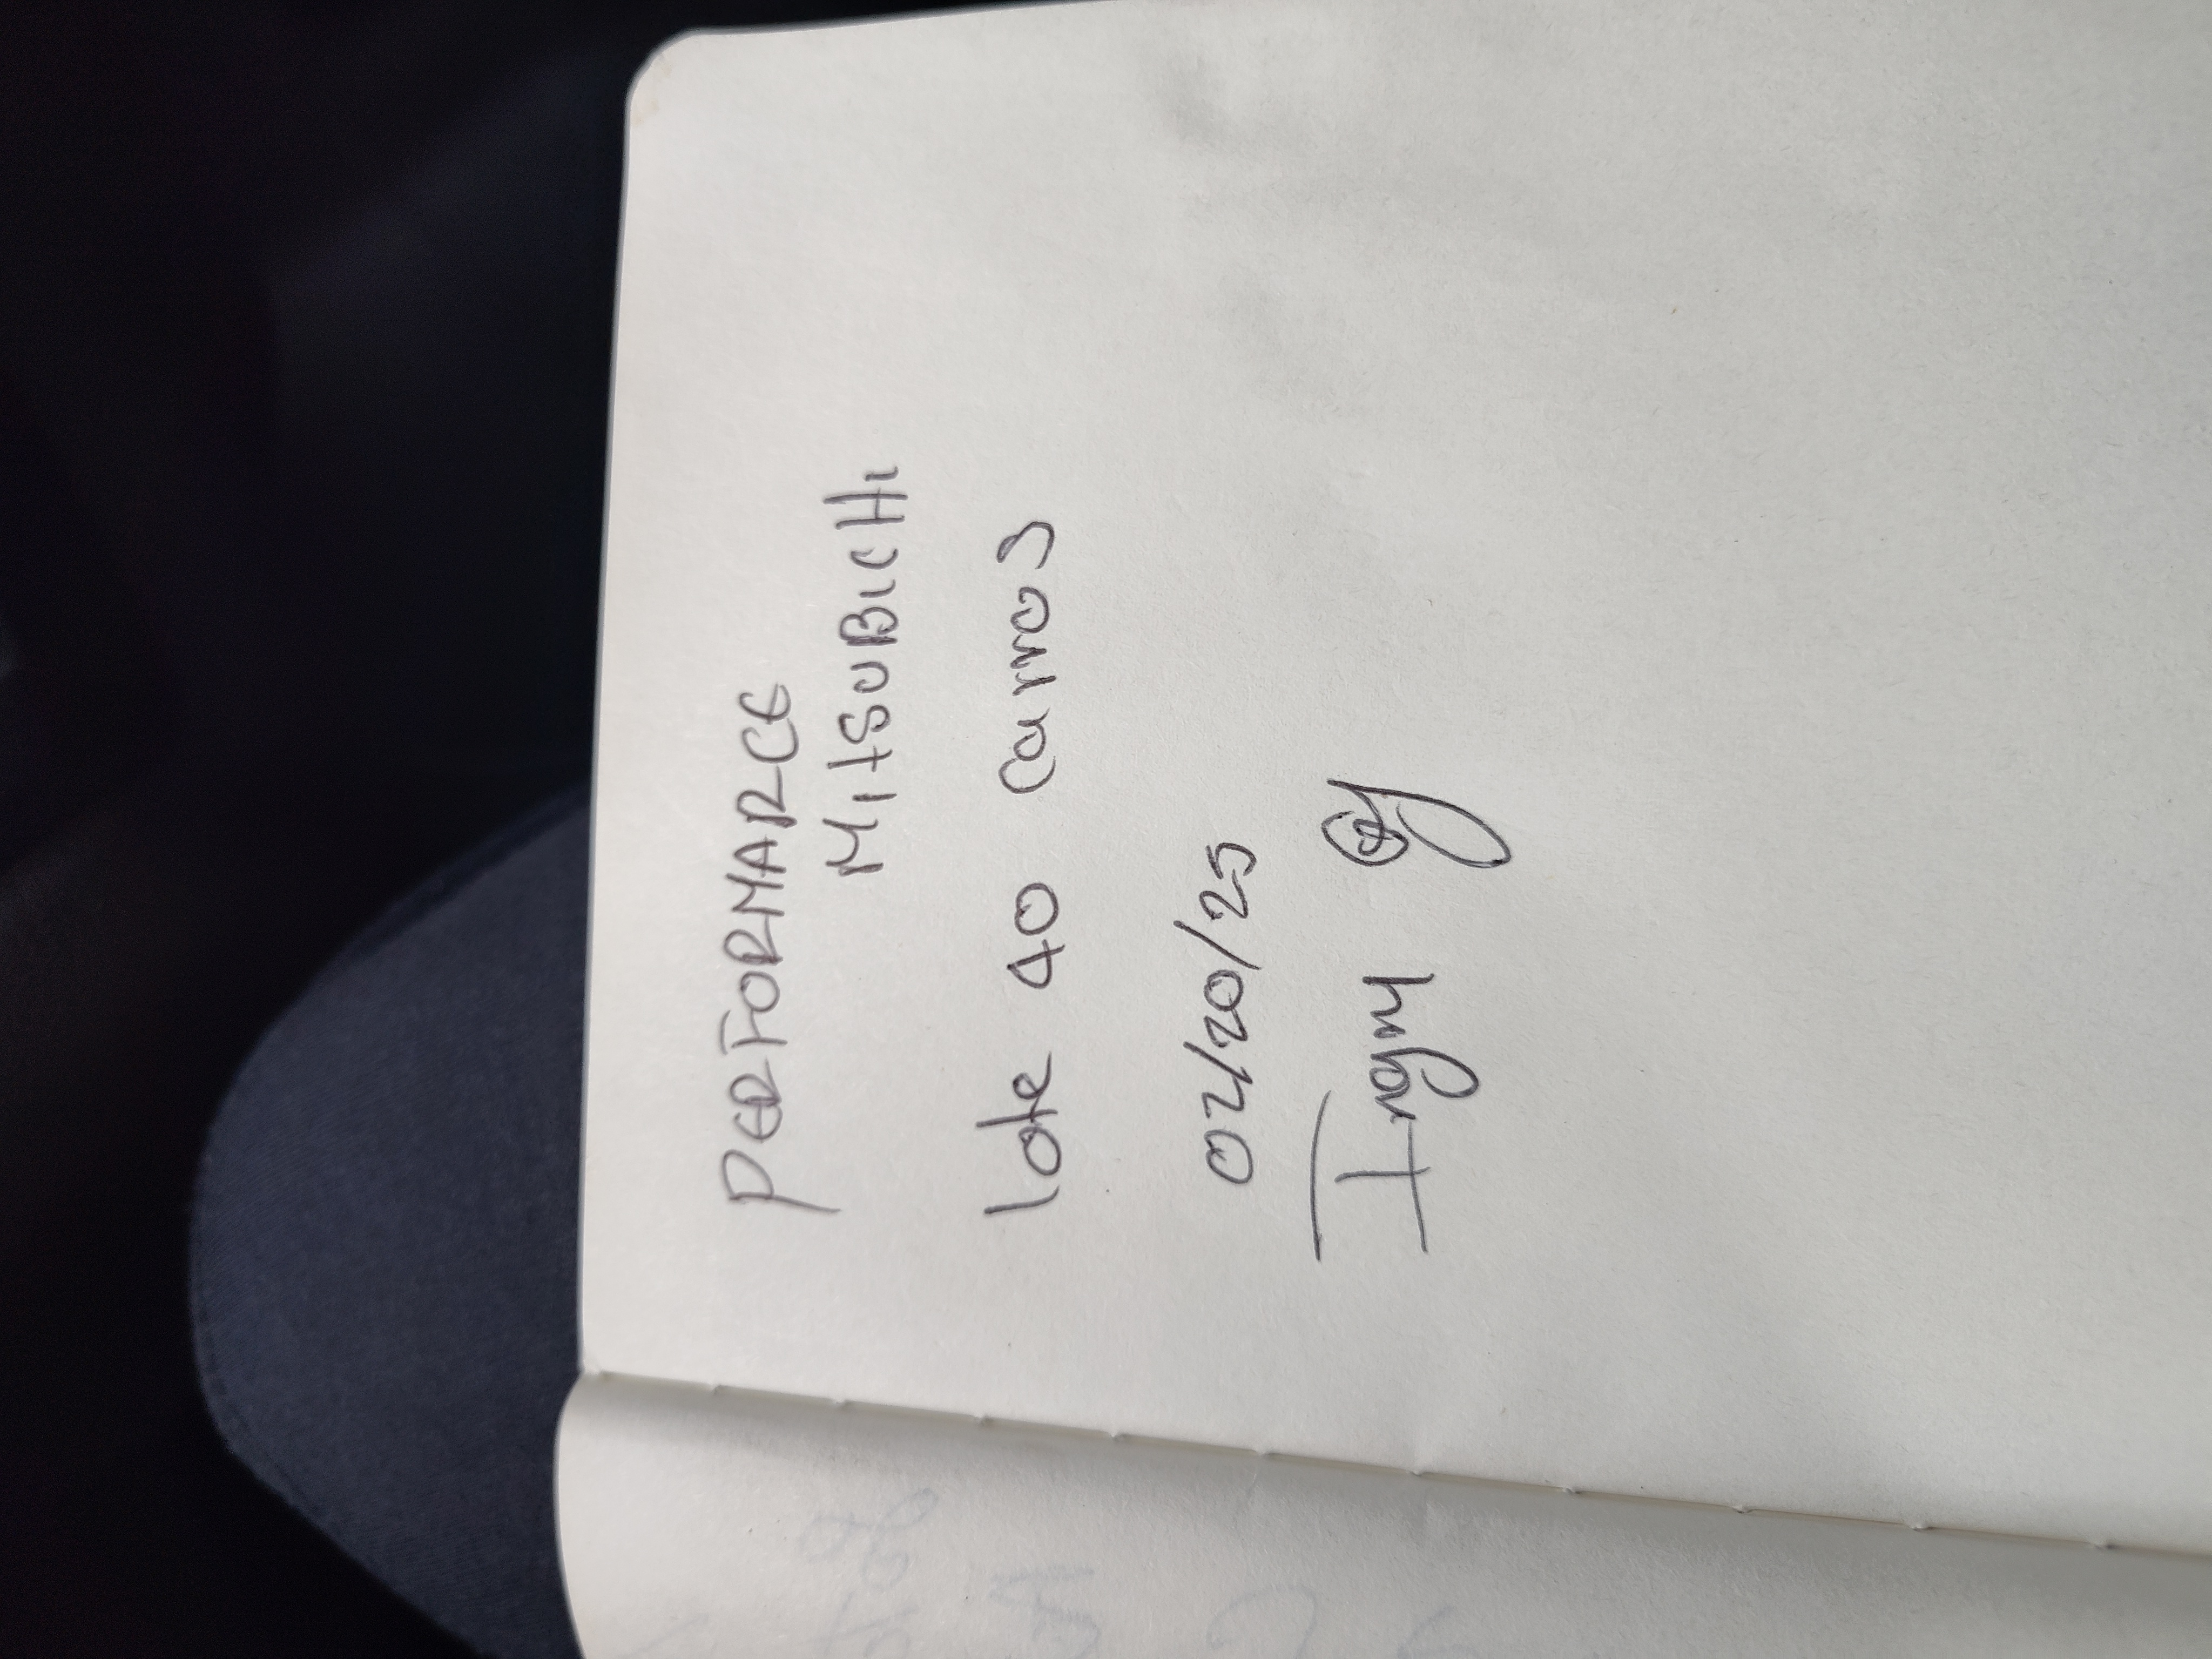 PERFORMARCE
MITSUBICHI
lote 40 carros
02/20/25